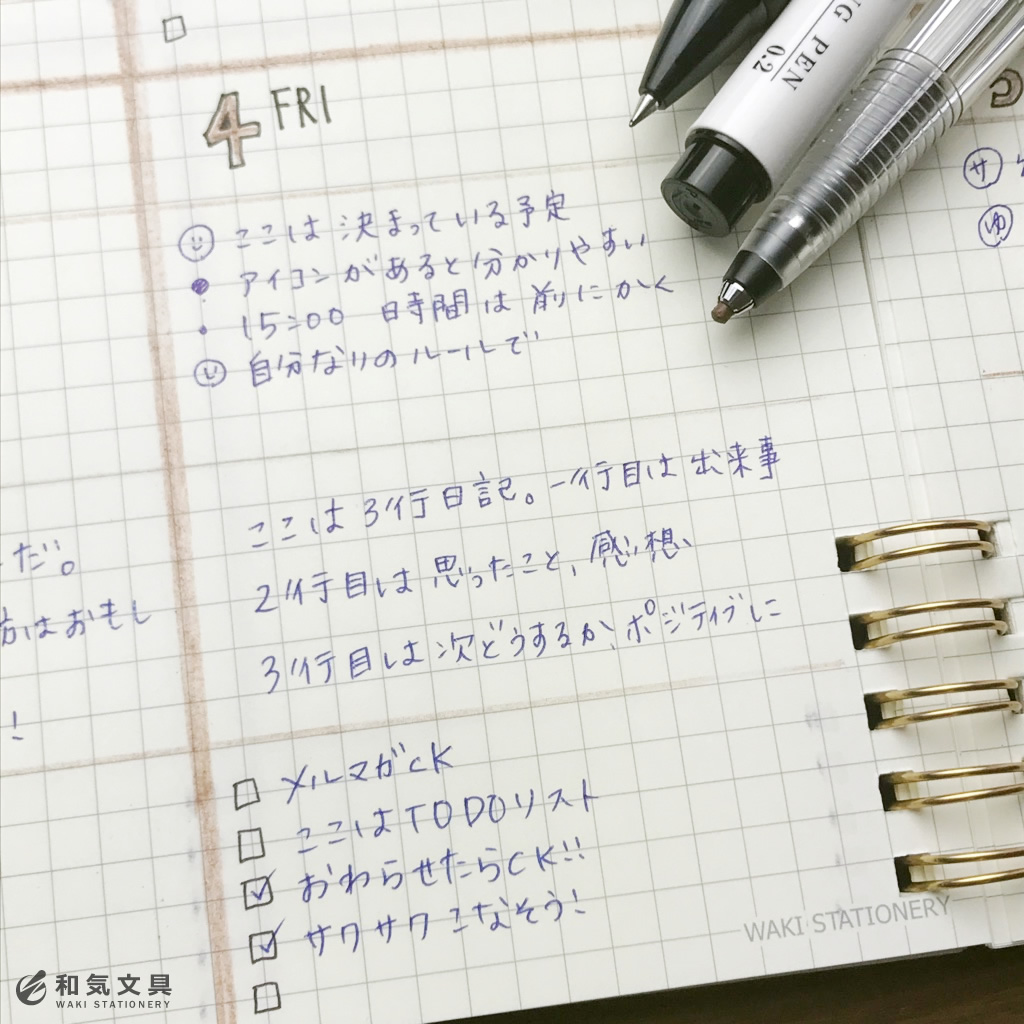 4 FRI
ここは決まっている予定
アイコンがあると分かりやすい
15:00 日時間は前にかく
自分なりのルールで
ここは3行日記。一行目は出来事
2行目は思ったこと、感想、
3行目は次どうするか、ポジティブに
メルマガCK
ここはTODOリスト
おわらせたらCK!!
サクサクこなそう!
だ。
方はおもし
!
サ
ゆ
PEN
0.2
WAKI STATIONERY
和気文具
WAKI STATIONERY